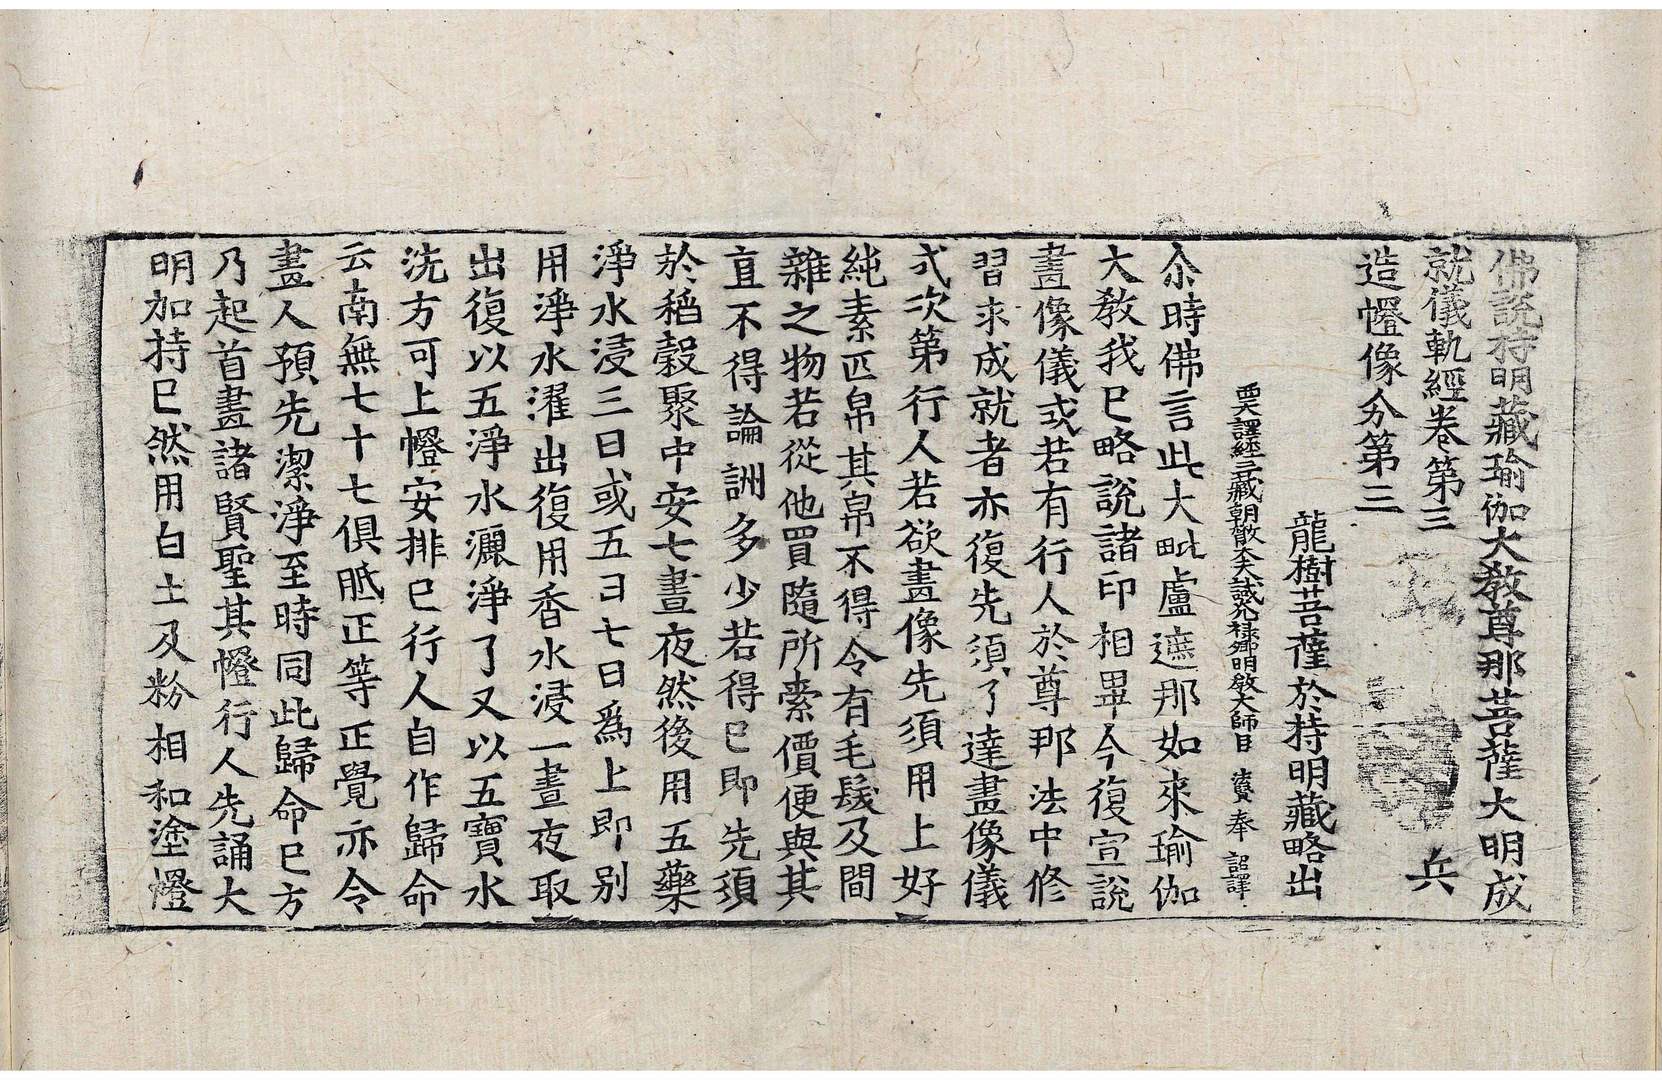 佛說持明藏瑜伽大敎尊那菩薩大明成
就儀軌經卷第三 兵
造㡧像分第三
龍樹菩薩於持明藏略出
西天譯經三藏朝散大夫試光祿卿明敎大師臣 法賢 奉 詔譯
尒時佛言此大毗盧遮那如來瑜伽
大敎我已略說諸印相畢今復宣說
畫像儀或若有行人於尊那法中修
習求成就者亦復先須了達畫像儀
式次第行人若欲畫像先須用上好
純素匹帛其帛不得令有毛髮及間
雜之物若從他買隨所索價便與其
直不得論詶多少若得已即先須
於稻穀聚中安七晝夜然後用五藥
淨水浸三日或五日七日爲上即別
用淨水濯出復用香水浸一晝夜取
出復以五淨水灑淨了又以五寶水
洗方可上㡧安排已行人自作歸命
云南無七十七俱胝正等正覺亦令
畫人預先潔淨至時同此歸命已方
乃起首畫諸賢聖其㡧行人先誦大
明加持已然用白土及粉相和塗㡧